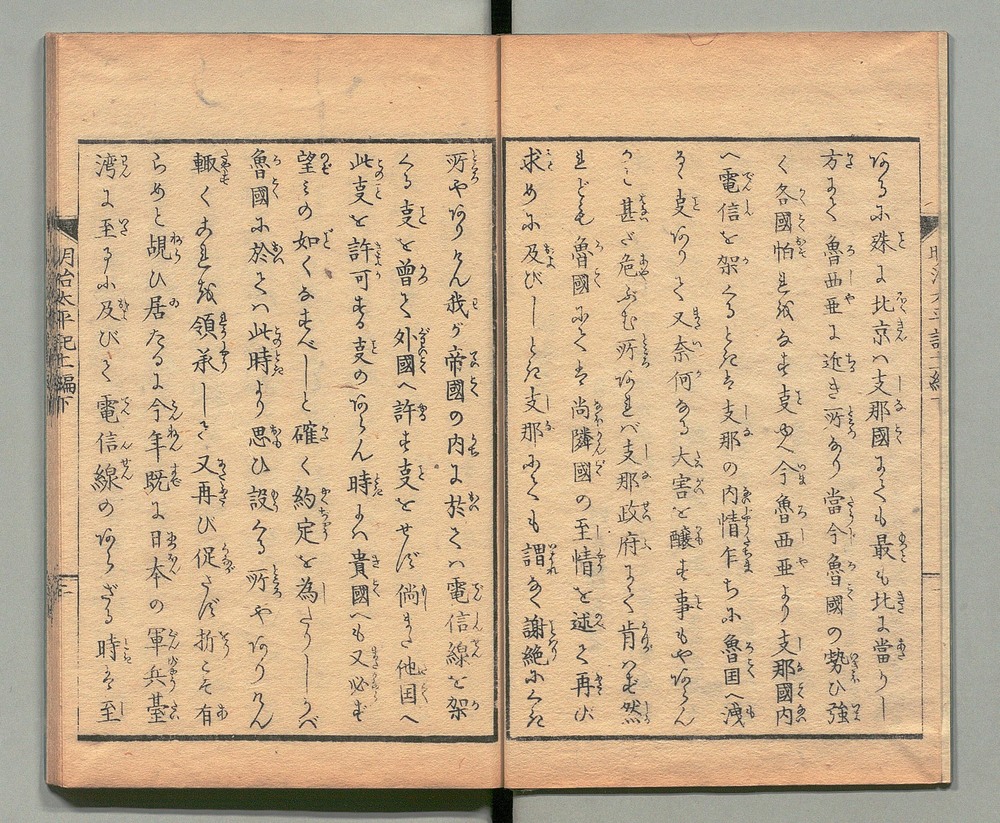 何るに殊に北京ハ支那國にても最も北に當りし
方にて魯西亜に近き所なり當今魯國の勢ひ強
く各國怕れ避るす叓ゆへ今魯西亜より支那國内
へ電信を架くるときは支那の内情乍ちに魯国へ洩
るゝ叓ありて又奈何なる大害を醸す事もやあらん
かと甚だ危ぶむ所あれバ支那政府にて肯ハず然
れども魯國にては尚隣國の至情を述て再び
求めに及びしとき支那にても謂なく謝絶にくき
所やありけん我が帝國の内に於てハ電信線を架
くる叓を曾て外國へ許す叓をせず倘また他国へ
此叓を許可する叓のあらん時にハ貴國へも又必ず
望みの如くなすべしと確く約定を為たりしかべ
魯國に於てハ此時より思ひ設くる所やありけん
輙くこれを領承して又再び促さず折こそ有
らめと覘ひ居たるに今年既に日本の軍兵臺
湾に至るに及びて電信線のあらざる時は至
明治太平記十二編下